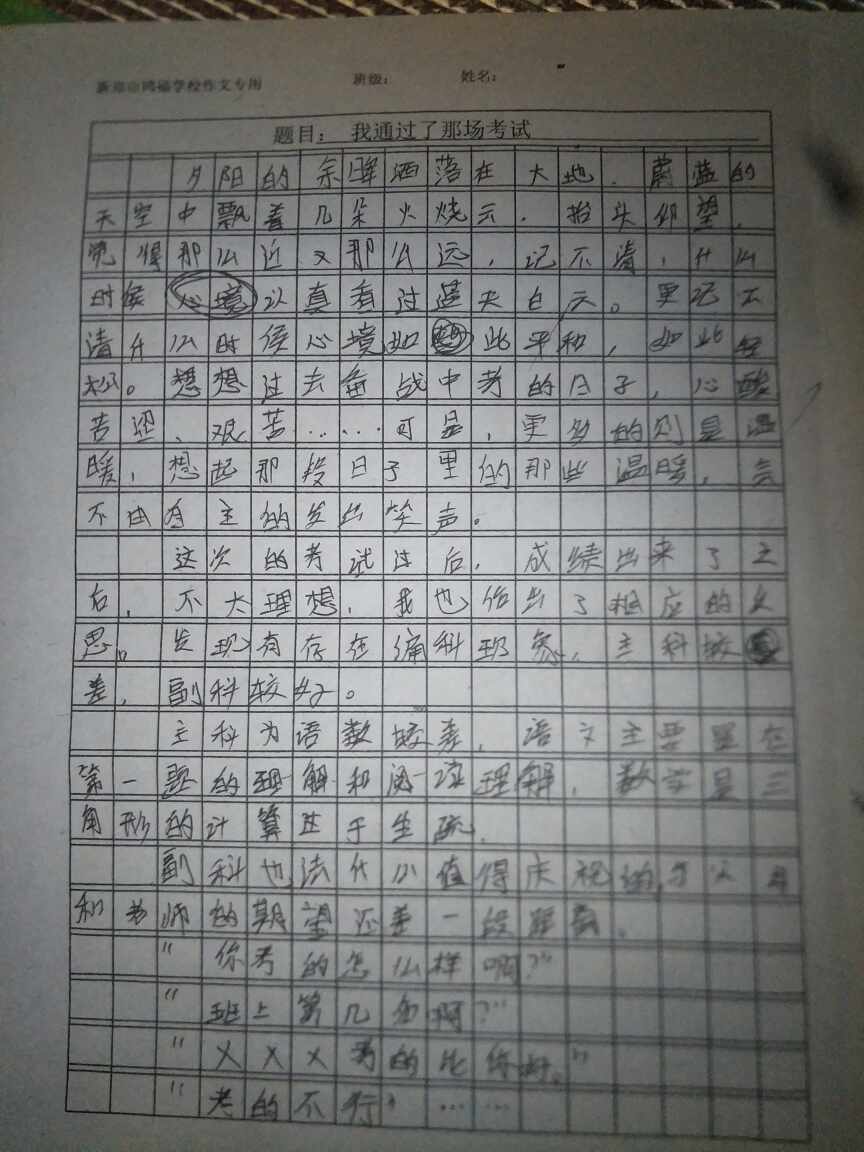 新郑市鸿福学校作文专用 班级： 姓名：
题目： 我通过了那场考试
夕阳的余晖洒落在大地．蔚蓝的
天空中飘着几朵火烧云．抬头仰望，
觉得那么近又那么远，记不清，什么
时候 认真看过蓝天白云。更记不
清什么时候心境如此平和，如此轻
松。想想过去备战中考的日子，心酸
苦涩、艰苦……可是，更多的则是温
暖，想起那段日子里的那些温暖，会
不由自主的发出笑声。
这次的考试过后，成绩出来了之
后，不太理想，我也作出了相应的反
思。发现有存在偏科现象，主科较
差，副科较好。
主科为语数较差，语文主要是在
第一题的理解和阅读理解，数学是三
角形的计算过于生疏．
副科也没什么值得庆祝的，与父母
和老师的期望还差一段距离．
“你考的怎么样啊？”
“班上第几名啊？”
“×××考的比你好。”
“考的不行”……